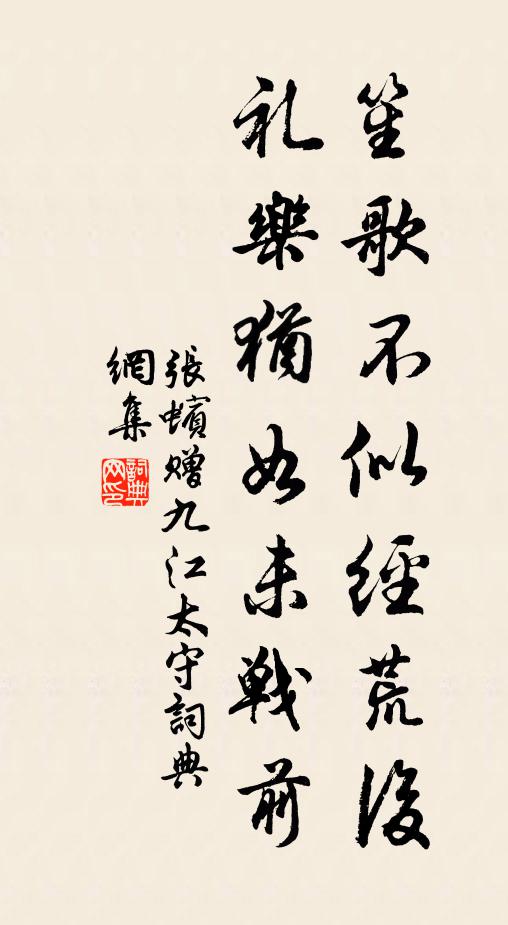 笙歌不似經荒後
礼樂猶如未戰前
張蠙贈九江太守詞典
網集
詞典
网印